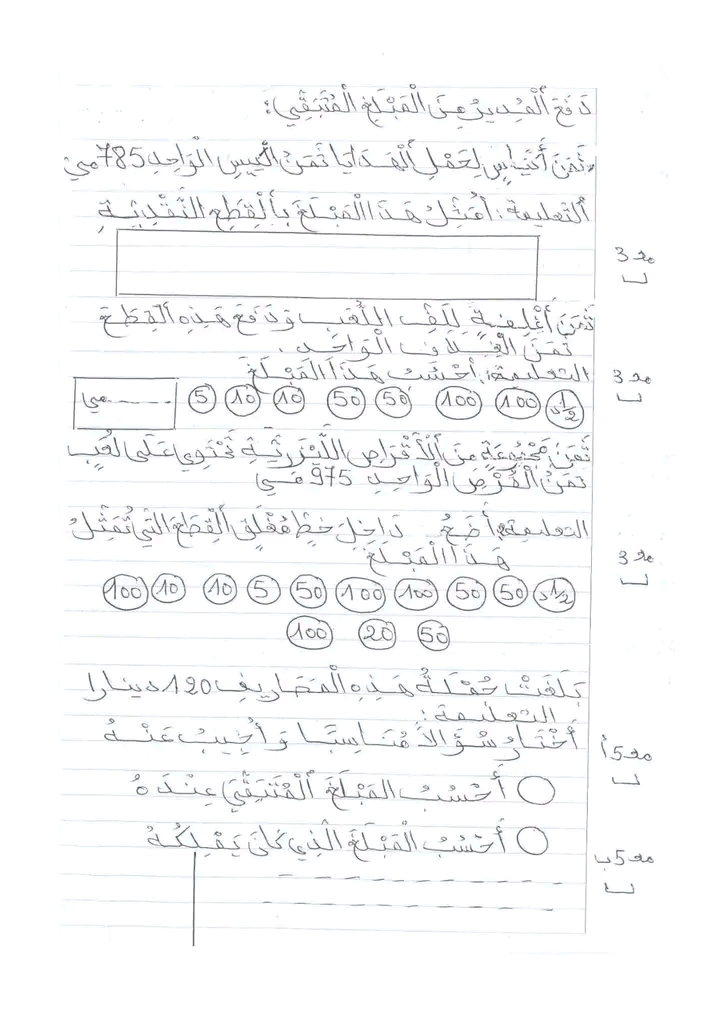 دَفَعَ الْمُدِيرُ مِنَ الْمَبْلَغِ الْمُتَبَقِّي:
ثَمَنَ أَكْيَاسٍ لِحَمْلِ الْهَدَايَا ثَمَنُ الْكِيسِ الْوَاحِدِ 785 مي
التعليمة: أُمَثِّلُ هَذَا الْمَبْلَغَ بِالْقِطَعِ النَّقْدِيَّةِ
مع 3
ثَمَنَ أَغْلِفَةٍ لِلَفِّ اللُّعَبِ وَدَفَعَ هَذِهِ الْقِطَعَ
ثَمَنَ الْغِلَافِ الْوَاحِدِ.
التعليمة: أَحْسُبُ هَذَا الْمَبْلَغَ
مع 3
1/2 د 100 100 50 50 10 10 5 ........مي
ثَمَنَ مَجْمُوعَةٍ مِنَ الْأَقْرَاصِ اللَّيْزَرِيَّةِ تَحْتَوِي عَلَى لُعَبٍ
ثَمَنُ الْقُرْصِ الْوَاحِدِ 975 مي
التعليمة: أَضَعُ دَاخِلَ خَطٍّ مُغْلَقٍ الْقِطَعَ الَّتِي تُمَثِّلُ
هَذَا الْمَبْلَغَ
مع 3
1/2 د 50 50 100 100 50 5 10 10 100
50 20 100
بَلَغَتْ جُمْلَةُ هَذِهِ الْمَصَارِيفِ 120 دينارا
التعليمة:
أَخْتَارُ سُؤَالًا مُنَاسِبًا وَأُجِيبُ عَنْهُ
مع 5 أ
أَحْسُبُ الْمَبْلَغَ الْمُتَبَقِّيَ عِنْدَهُ
أَحْسُبُ الْمَبْلَغَ الَّذِي كَانَ يَمْلِكُهُ
مع 5 ب